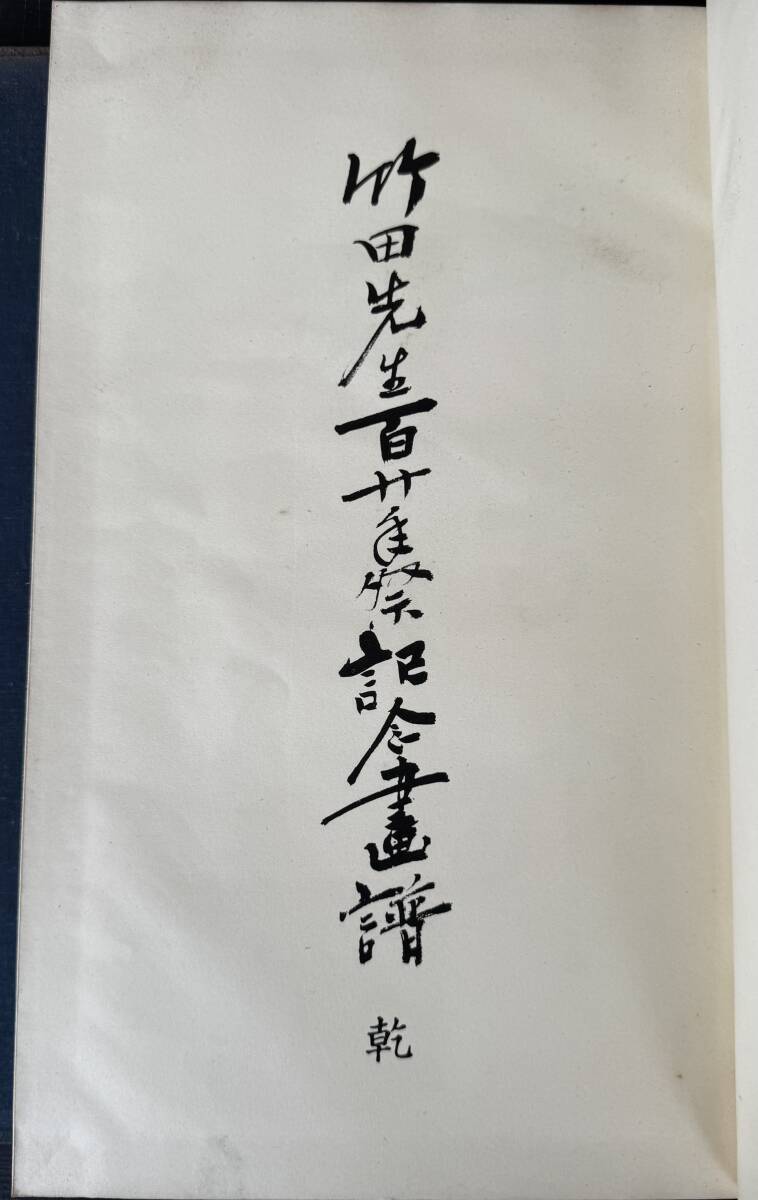 竹田先生百廿年祭記念畫譜
乾